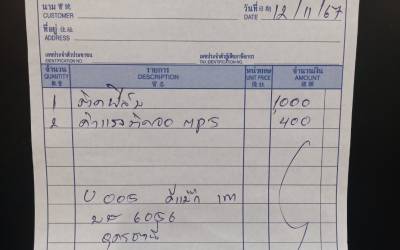 นาม
CUSTOMER
วันที่
DATE 12/11/67
ที่อยู่
ADDRESS
เลขประจำตัวประชาชน
IDENTIFICATION NO.
เลขประจำตัวผู้เสียภาษีอากร
TAX IDENTIFICATION NO.
จำนวน รายการ หน่วยละ จำนวนเงิน
QUANTITY DESCRIPTION UNIT PRICE AMOUNT
1 ติดฟิล์ม 1000
2 ค่าแรงติดจอ MPS 400
บธ 6056
อุดรธานี